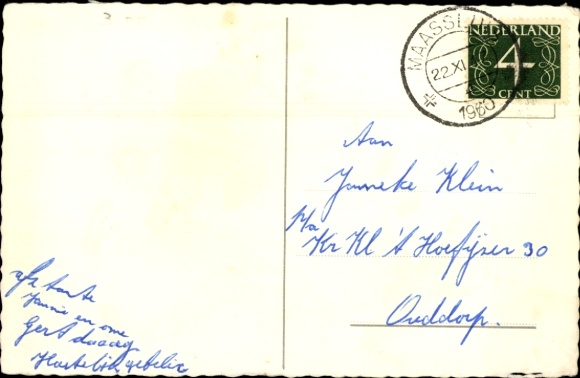 MAASSLUIS
22.XI
1960
NEDERLAND
4
CENT
Aan
Janneke Klein
p/a
Kr Kl 't Hoefijzer 30
Ouddorp.
afz tante
Jannie en ome
Gert daaag
Hartelijk gefelic